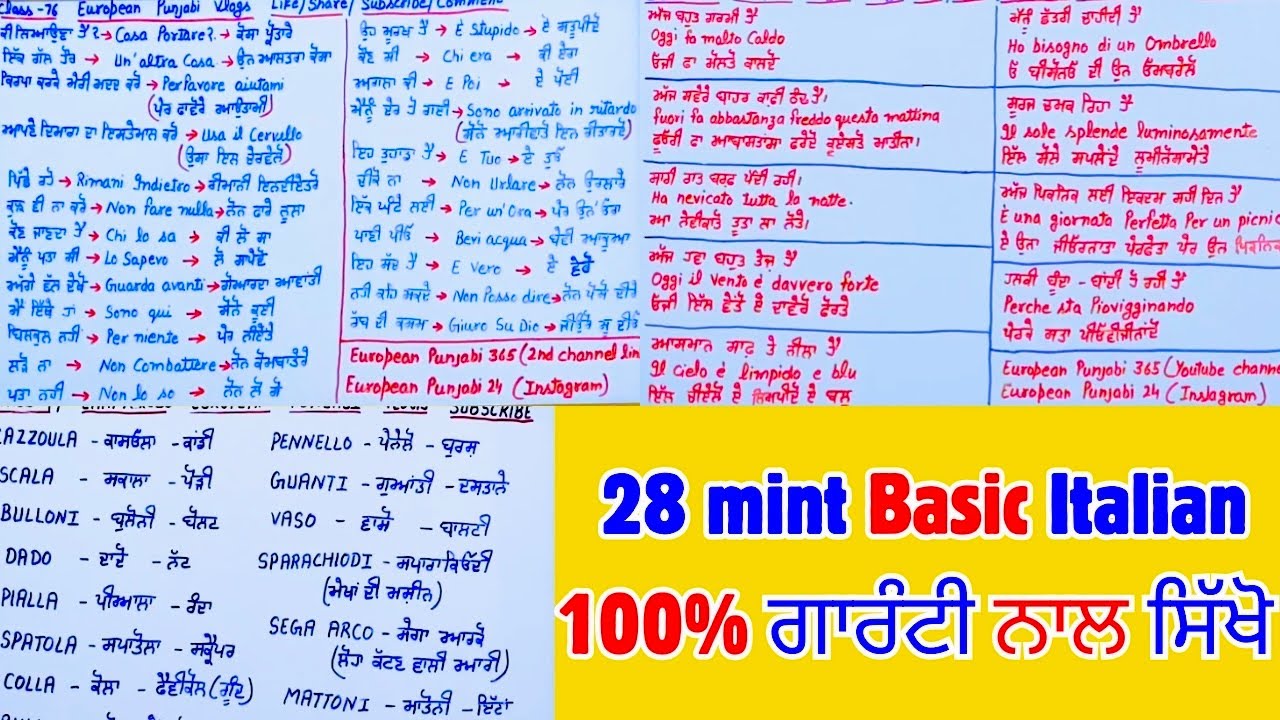 Class-76 European Punjabi Vlogs Like/Share/Subscribe/Comment
ਕੀ ਲਿਆਉਣਾ ਹੈ? → Cosa Portare? → ਕੋਸਾ ਪ੍ਰੋਤਾਰੇ
ਇੱਕ ਗੱਲ ਹੋਰ → Un'altra Cosa → ਉਨ ਆਲਤਰਾ ਕੋਸਾ
ਕਿਰਪਾ ਕਰਕੇ ਮੇਰੀ ਮਦਦ ਕਰੋ → Perfavore aiutami
(ਪੇਰ ਫਾਵੋਰੇ ਆਇਉਤਾਮੀ)
ਆਪਣੇ ਦਿਮਾਗ ਦਾ ਇਸਤੇਮਾਲ ਕਰੋ → Usa il Cervello
(ਉਸਾ ਇਲ ਚੇਰਵੇਲੋ)
ਪਿੱਛੇ ਰਹੋ → Rimani Indietro → ਰੀਮਾਨੀ ਇਨਦੀਏਤਰੋ
ਕੁਝ ਵੀ ਨਾ ਕਰੋ → Non fare nulla → ਨੋਨ ਫਾਰੇ ਨੂਲਾ
ਕੌਣ ਜਾਣਦਾ ਹੈ → Chi lo sa → ਕੀ ਲੋ ਸਾ
ਮੈਨੂੰ ਪਤਾ ਸੀ → Lo Sapevo → ਲੋ ਸਾਪੇਵੋ
ਅੱਗੇ ਵੱਲ ਦੇਖੋ → Guarda avanti → ਗੋਆਰਦਾ ਆਵਾਂਤੀ
ਮੈਂ ਇੱਥੇ ਹਾਂ → Sono qui → ਸੋਨੋ ਕੂਈ
ਬਿਲਕੁਲ ਨਹੀਂ → Per niente → ਪੇਰ ਨੀਏਂਤੇ
ਲੜੋ ਨਾ → Non Combattere → ਨੋਨ ਕੋਮਬਾਤੇਰੇ
ਪਤਾ ਨਹੀਂ → Non lo so → ਨੋਨ ਲੋ ਸੋ
ਉਹ ਮੂਰਖ ਹੈ → E Stupido → ਏ ਸਤੂਪੀਦੋ
ਕੌਣ ਸੀ → Chi era → ਕੀ ਏਰਾ
ਅਗਲਾ ਕੀ → E Poi → ਏ ਪੋਈ
ਮੈਨੂੰ ਦੇਰ ਹੋ ਗਈ → Sono arrivato in ritardo
(ਸੋਨੋ ਆਰੀਵਾਤੋ ਇਨ ਰੀਤਾਰਦੋ)
ਇਹ ਤੁਹਾਡਾ ਹੈ → E Tuo → ਏ ਤੂਓ
ਚੀਕੋ ਨਾ → Non Urlare → ਨੋਨ ਉਰਲਾਰੇ
ਇੱਕ ਘੰਟੇ ਲਈ → Per un'Ora → ਪੇਰ ਉਨ ਓਰਾ
ਪਾਣੀ ਪੀਓ → Bevi acqua → ਬੇਵੀ ਆਕੂਆ
ਇਹ ਸੱਚ ਹੈ → E Vero → ਏ ਵੇਰੋ
ਨਹੀਂ ਕਹਿ ਸਕਦੇ → Non Posso dire → ਨੋਨ ਪੋਸੋ ਦੀਰੇ
ਰੱਬ ਦੀ ਕਸਮ → Giuro Su Dio →
European Punjabi 365 (2nd channel lin
European Punjabi 24 (Instagram)
ਅੱਜ ਬਹੁਤ ਗਰਮੀ ਹੈ
Oggi fa molto Caldo
ਓਜੀ ਫਾ ਮੋਲਤੋ ਕਾਲਦੋ
ਅੱਜ ਸਵੇਰੇ ਬਾਹਰ ਕਾਫੀ ਠੰਢ ਹੈ।
fuori fa abbastanza freddo questa mattina
ਫੂਓਰੀ ਫਾ ਆਬਾਸਤਾਂਸਾ ਫਰੇਦੋ ਕੂਏਸਤੋ ਮਾਤੀਨਾ।
ਸਾਰੀ ਰਾਤ ਬਰਫ ਪੈਂਦੀ ਰਹੀ।
Ha nevicato tutta la notte.
ਆ ਨੇਵੀਕਾਤੋ ਤੂਤਾ ਲਾ ਨੋਤੇ।
ਅੱਜ ਹਵਾ ਬਹੁਤ ਤੇਜ਼ ਹੈ
Oggi il Vento è davvero forte
ਓਜੀ ਇਲ ਵੇਂਤੋ ਏ ਦਾਵੇਰੋ ਫੋਰਤੇ
ਆਸਮਾਨ ਸਾਫ਼ ਤੇ ਨੀਲਾ ਹੈ
Il Cielo è limpido e blu
ਇੱਲ ਚੀਏਲੋ ਏ ਲਿਮਪੀਦੋ ਏ ਬਲੂ
ਮੈਨੂੰ ਛੱਤਰੀ ਚਾਹੀਦੀ ਹੈ
Ho bisogno di un Ombrello
ਓ ਬੀਸੋਨਓ ਦੀ ਉਨ ਓਮਬਰੇਲੋ
ਸੂਰਜ ਚਮਕ ਰਿਹਾ ਹੈ
Il sole splende luminosamente
ਇੱਲ ਸੋਲੇ ਸਪਲੇਂਦੇ ਲੂਮੀਨੋਸਾਮੇਂਤੇ
ਅੱਜ ਪਿਕਨਿਕ ਲਈ ਇਕਦਮ ਸਹੀ ਦਿਨ ਹੈ
È una giornata Perfetta Per un picnic
ਏ ਉਨਾ ਜੀਓਰਨਾਤਾ ਪੇਰਫੇਤਾ ਪੇਰ ਉਨ ਪਿਕਨਿਕ
ਹਲਕੀ ਬੂੰਦਾ-ਬਾਂਦੀ ਹੋ ਰਹੀ ਹੈ
Perche sta Piovigginando
ਪੇਰਕੇ ਸਤਾ ਪੀਓਵੀਜੀਨਾਂਦੋ
European Punjabi 365 (Youtube channe
European Punjabi 24 (Instagram)
SUBSCRIBE
CAZZOULA - ਕਾਸਓਲਾ - ਕਾਂਡੀ
SCALA - ਸਕਾਲਾ - ਪੌੜੀ
BULLONI - ਬੁਲੋਨੀ - ਬੋਲਟ
DADO - ਦਾਦੋ - ਨੱਟ
PIALLA - ਪੀਆਲਾ - ਰੰਦਾ
SPATOLA - ਸਪਾਤੋਲਾ - ਸਕ੍ਰੈਪਰ
COLLA - ਕੋਲਾ - ਫੈਵੀਕੋਲ (ਗੂੰਦ)
PENNELLO - ਪੇਨੇਲੋ - ਬੁਰਸ਼
GUANTI - ਗੁਆਂਤੀ - ਦਸਤਾਨੇ
VASO - ਵਾਸੋ - ਬਾਲਟੀ
SPARACHIODI - ਸਪਾਰਾਕਿਓਦੀ
(ਮੇਖਾਂ ਦੀ ਮਸ਼ੀਨ)
SEGA ARCO - ਸੇਗਾ ਆਰਕੋ
(ਲੋਹਾ ਕੱਟਣ ਵਾਲੀ ਆਰੀ)
MATTONI - ਮਾਤੋਨੀ - ਇੱਟਾਂ
28 mint Basic Italian
100% ਗਾਰੰਟੀ ਨਾਲ ਸਿੱਖੋ